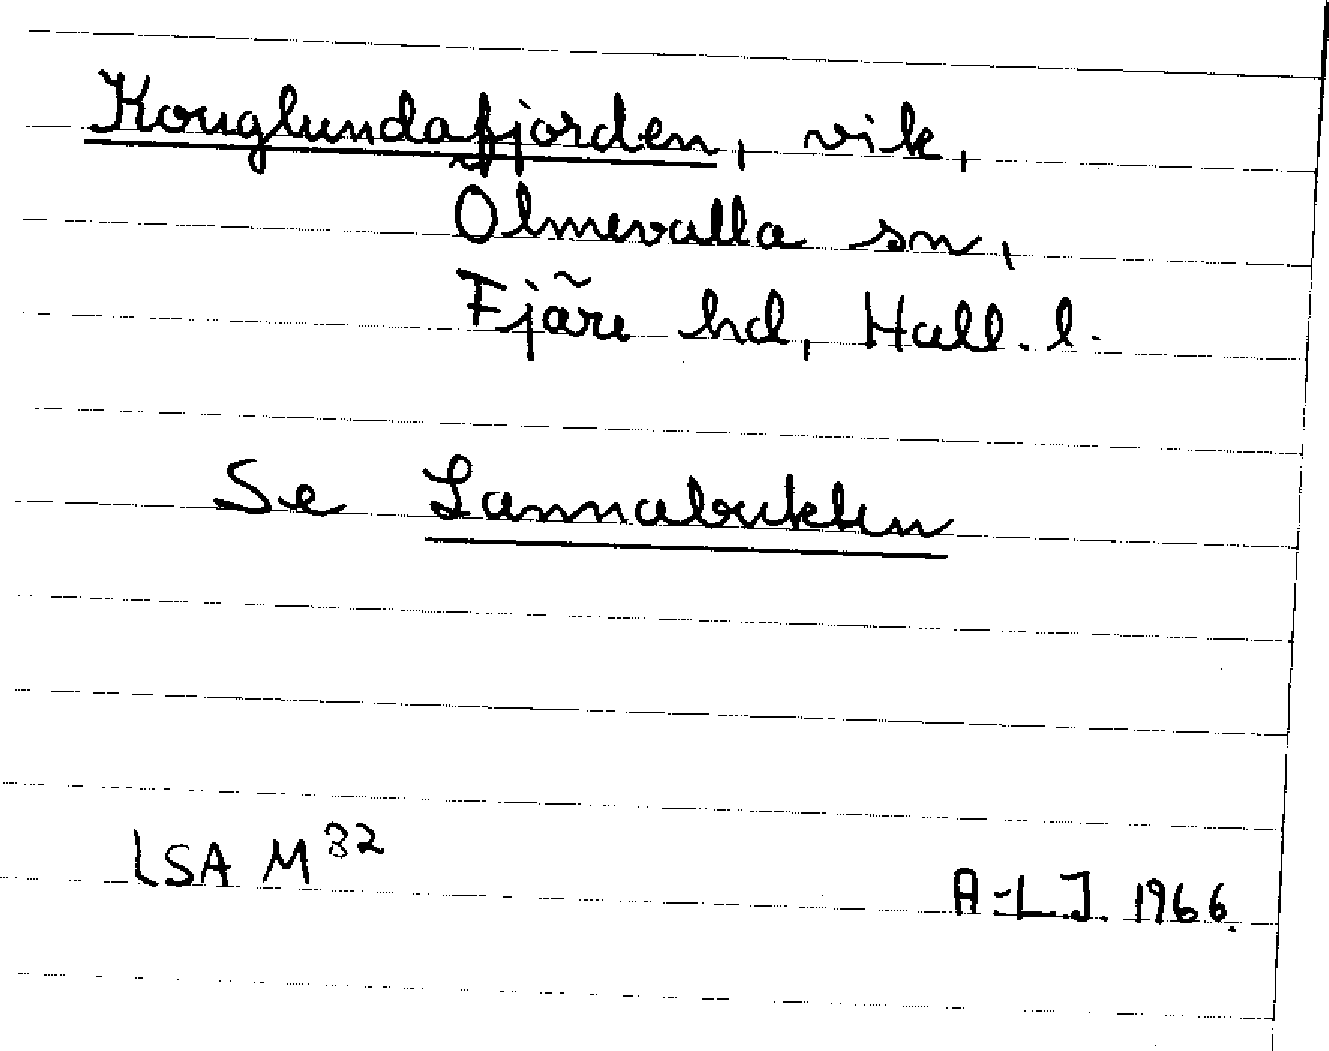 Kouglundafjorden, vik,
Ölmevalla sn,
Fjäre hd, Hall. l.
Se Lannabukten
LSA M 82
A-L J. 1966.